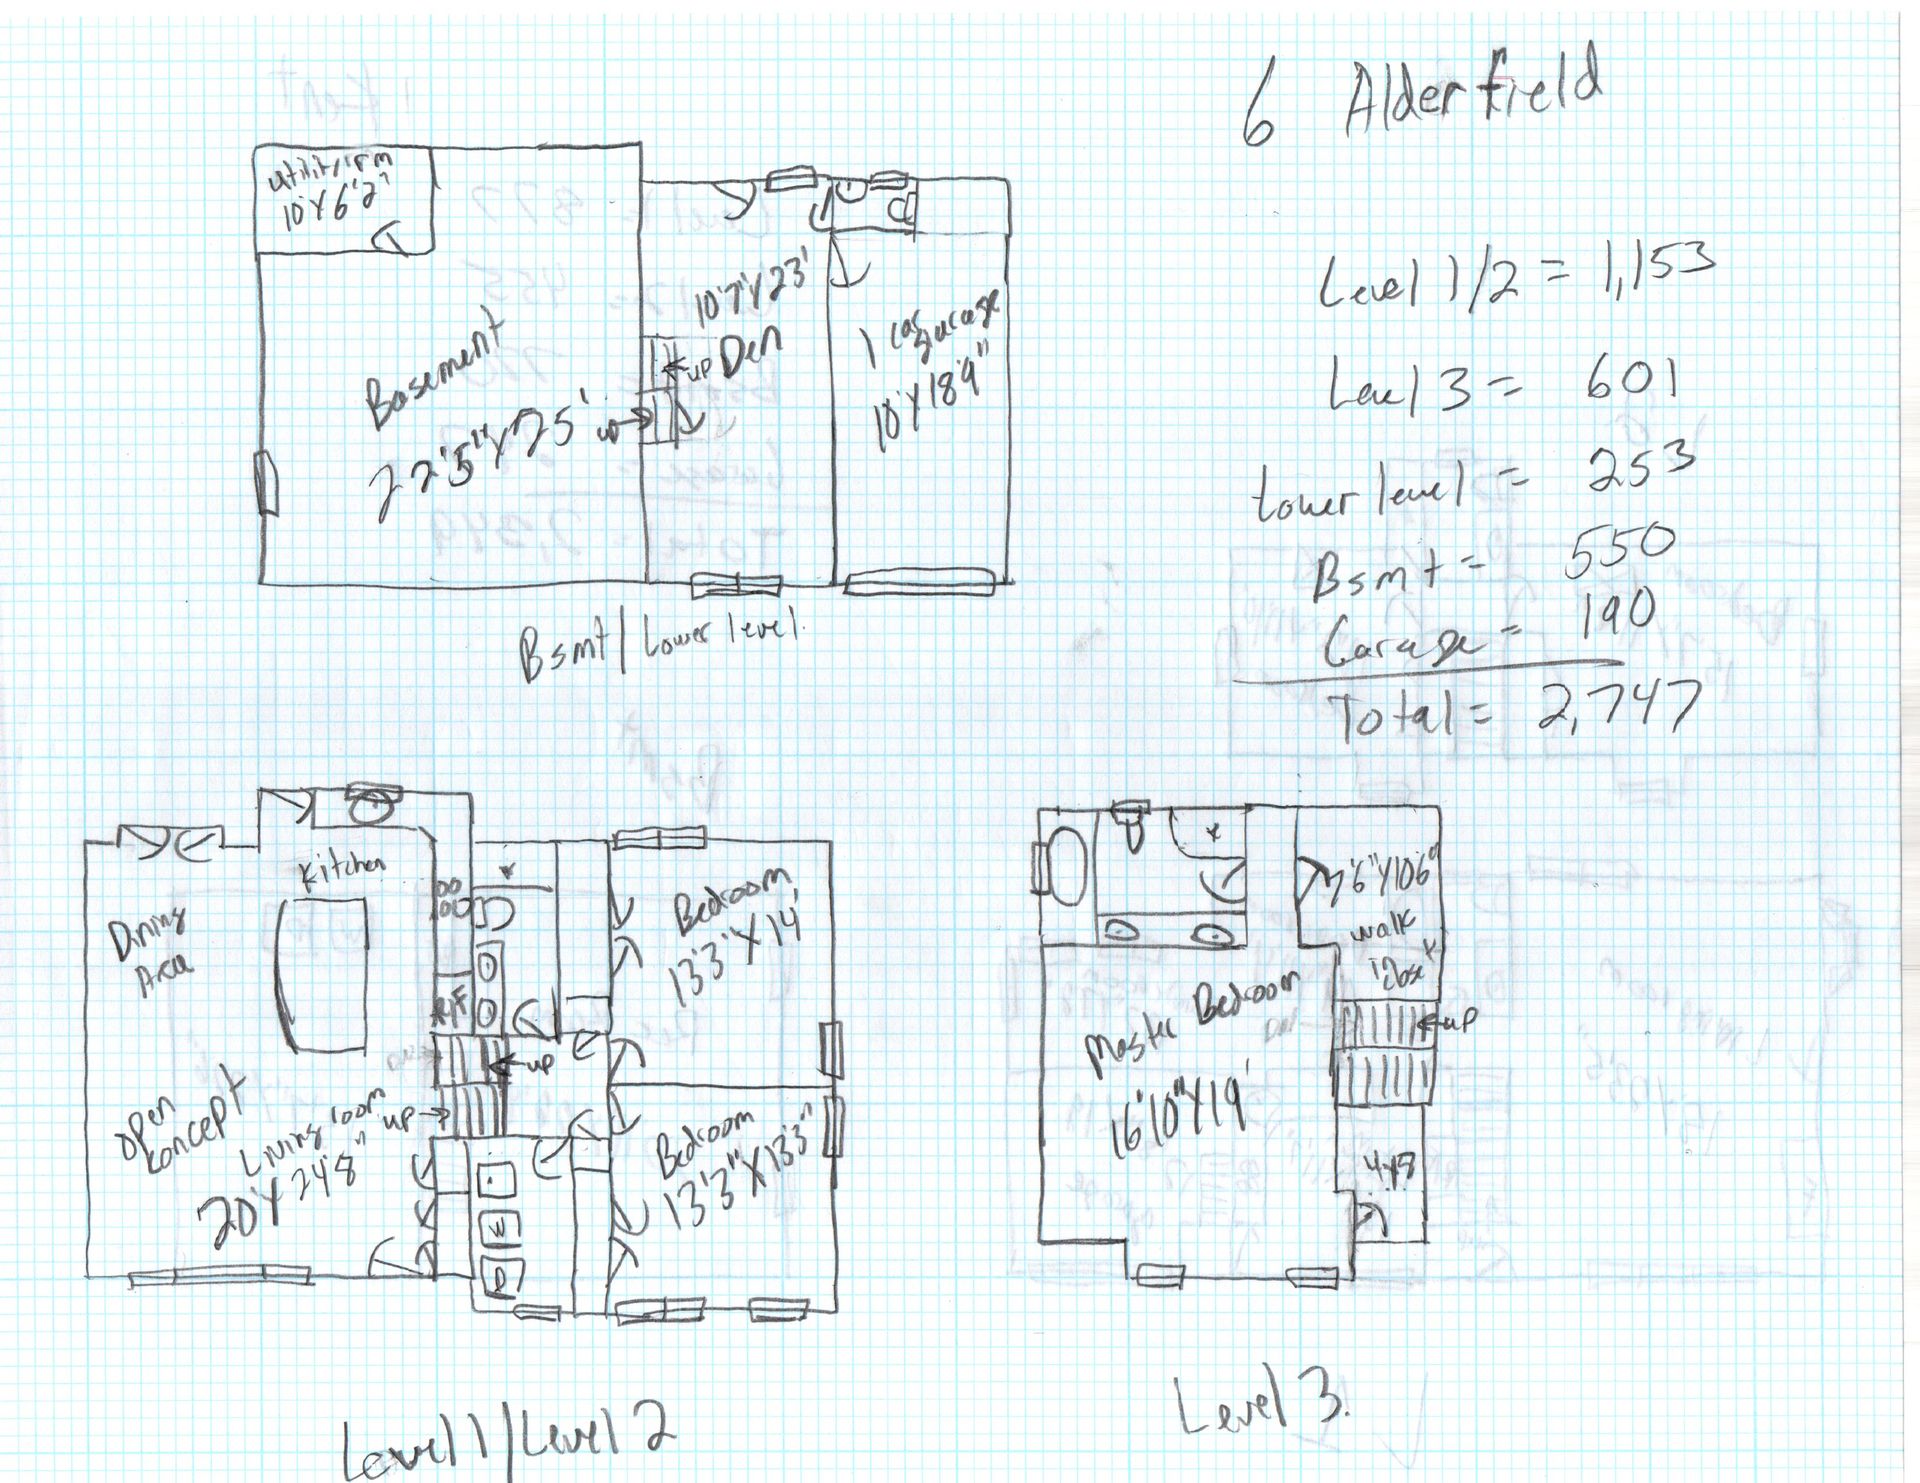 6 Alderfield
Level 1/2 = 1,153
Level 3 = 601
Lower level = 253
Bsmt = 550
Garage = 190
Total = 2,747
utility rm
10'X6'2"
Basement
22'5"X25'
up
up
10'7"X23'
Den
1 car garage
10'X18'9"
Bsmt/Lower level.
Kitchen
Dining
Area
R/F
open
concept
Living room
20'X24'8"
up
up
W
D
Bedroom
13'3"X14'
Bedroom
13'3"X13'3"
Level 1/Level 2
7'6"X10'6"
walk
closet
Master Bedroom
16'10"X19'
DN
up
4x8
Level 3.